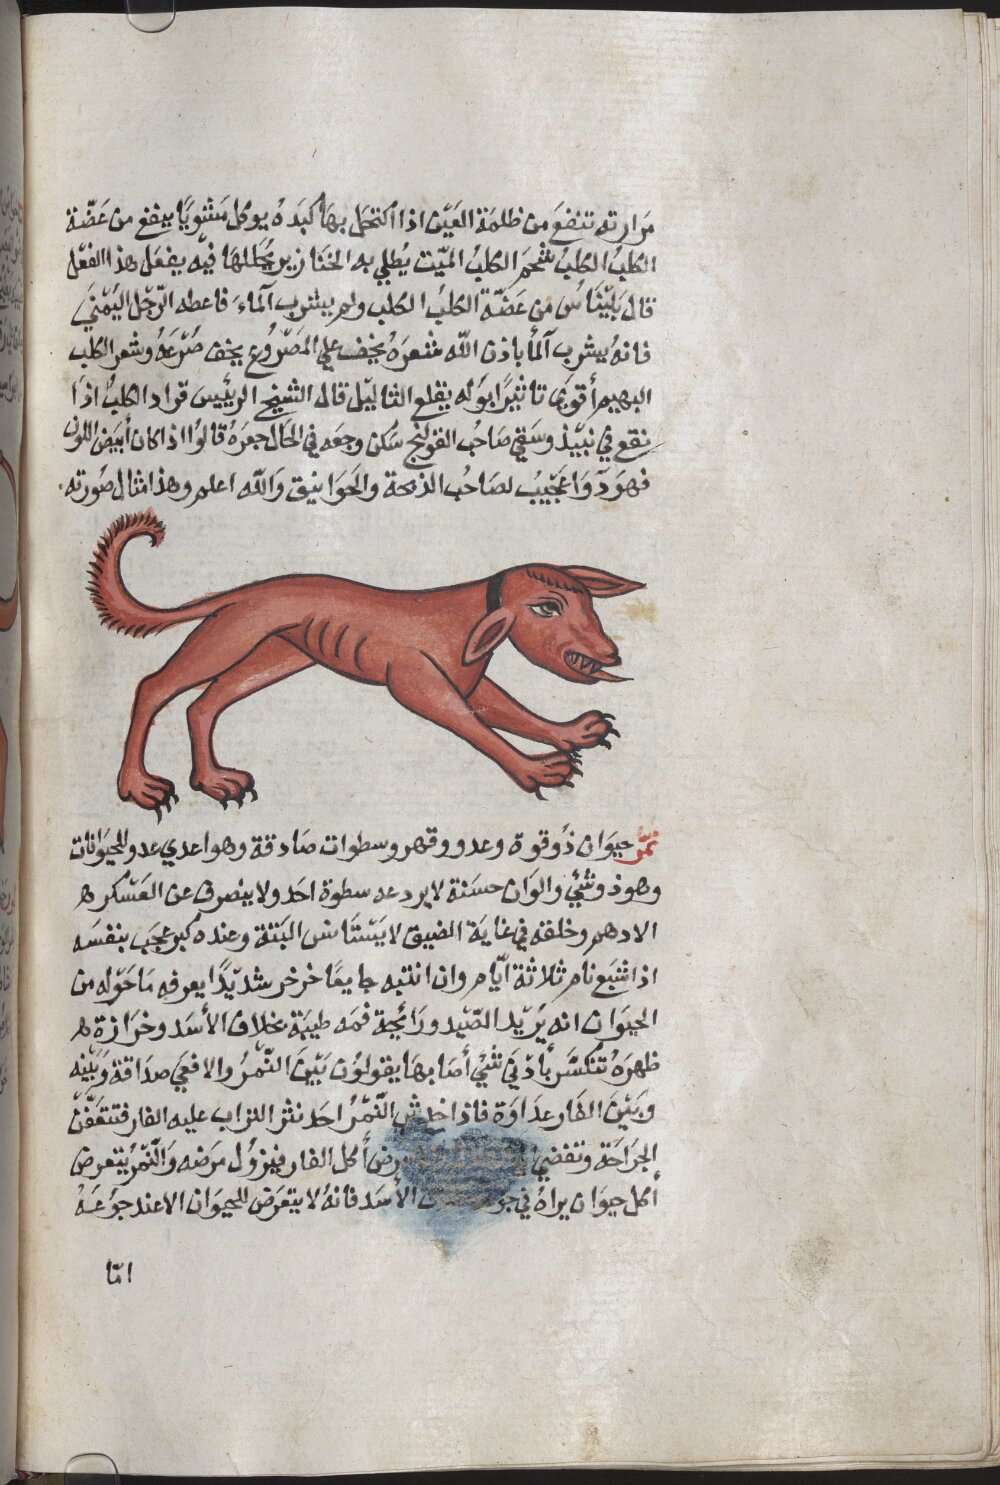 مَرارته تنفع من ظلمة العَيْن اذا اكتحل بها كبَده يوكل مَشويا ينفع من عَضّة
الكلبُ الكلبُ شحم الكلبُ الميّت يُطلي به الخنازير يُحَللهَا فيه يفعَل هذا الفعْل
قال بَليْنَاس من عَضّة الكلبُ الكلب ولم يشرب آلماءَ فاعطه الرّجْل اليُمْنيَ
فانهُ يشرب آلمأ باذن اللّه شعرَهُ يُخِيف علي المصَرُوع يخف صَرْعَهُ وشعر الكلب
البهيم أقويَ تاثيرًا بوَله يقلع الثاليْل قال الشيخ الرئيس قراد الكلبُ اذا
نقع في نبيْذ وسَقي صَاحبُ القولنج سَكن وجعَه في الحَال جعرَهُ قالوُا اذا كان أبيَض اللون
فهوَ دَوَا عَجيْبُ لصَاحبُ الذبحة والخَوانيق وَاللّه اعلم وهذا مثال صُورته
نمرٌ حيوَان ذُو قوة وعدو وقهر وسطوات صَادقة وهو اعدي عدو للحيوَانات
وهو ذو وشْيٍ والوَان حسَنة لا يردعه سطوة احَد ولا ينصرف عن العَسْكر
الادهم وخلقه في غايَة الضيق لا يَسْتَانس البَتة وعنده كبر عجَب بنفسَه
اذا شبَع نام ثلاثة ايّام وان انتبه جايعًا خرخر شديْدًا يعرفه مَاحَوْله من
الحيوَان انه يَريْد الصّيْد ورَائحة فمَه طيبَة بخلاف الأسَد وخرازة
ظهرَهُ تنكسَّر بأدْنيَ شيْ أصَابهَا يقولوُن بَيْنَ النّمْرُ والافعي صداقة وَبَيْنه
وبَيْنَ الفَار عدَاوَة فاذا خدش النّمْرُ احَد نثر التراب عليه الفار فتتعَفّنُ
الجرَاحَة وتفضي أكل الفار فيزوُل مرَضه وَالنّمْرُ يتعرض
أكل حيوَان يراهُ في الأسَد فانهُ لا يتعَرَض للحيوَان الا عند جوُعَهُ
امّا